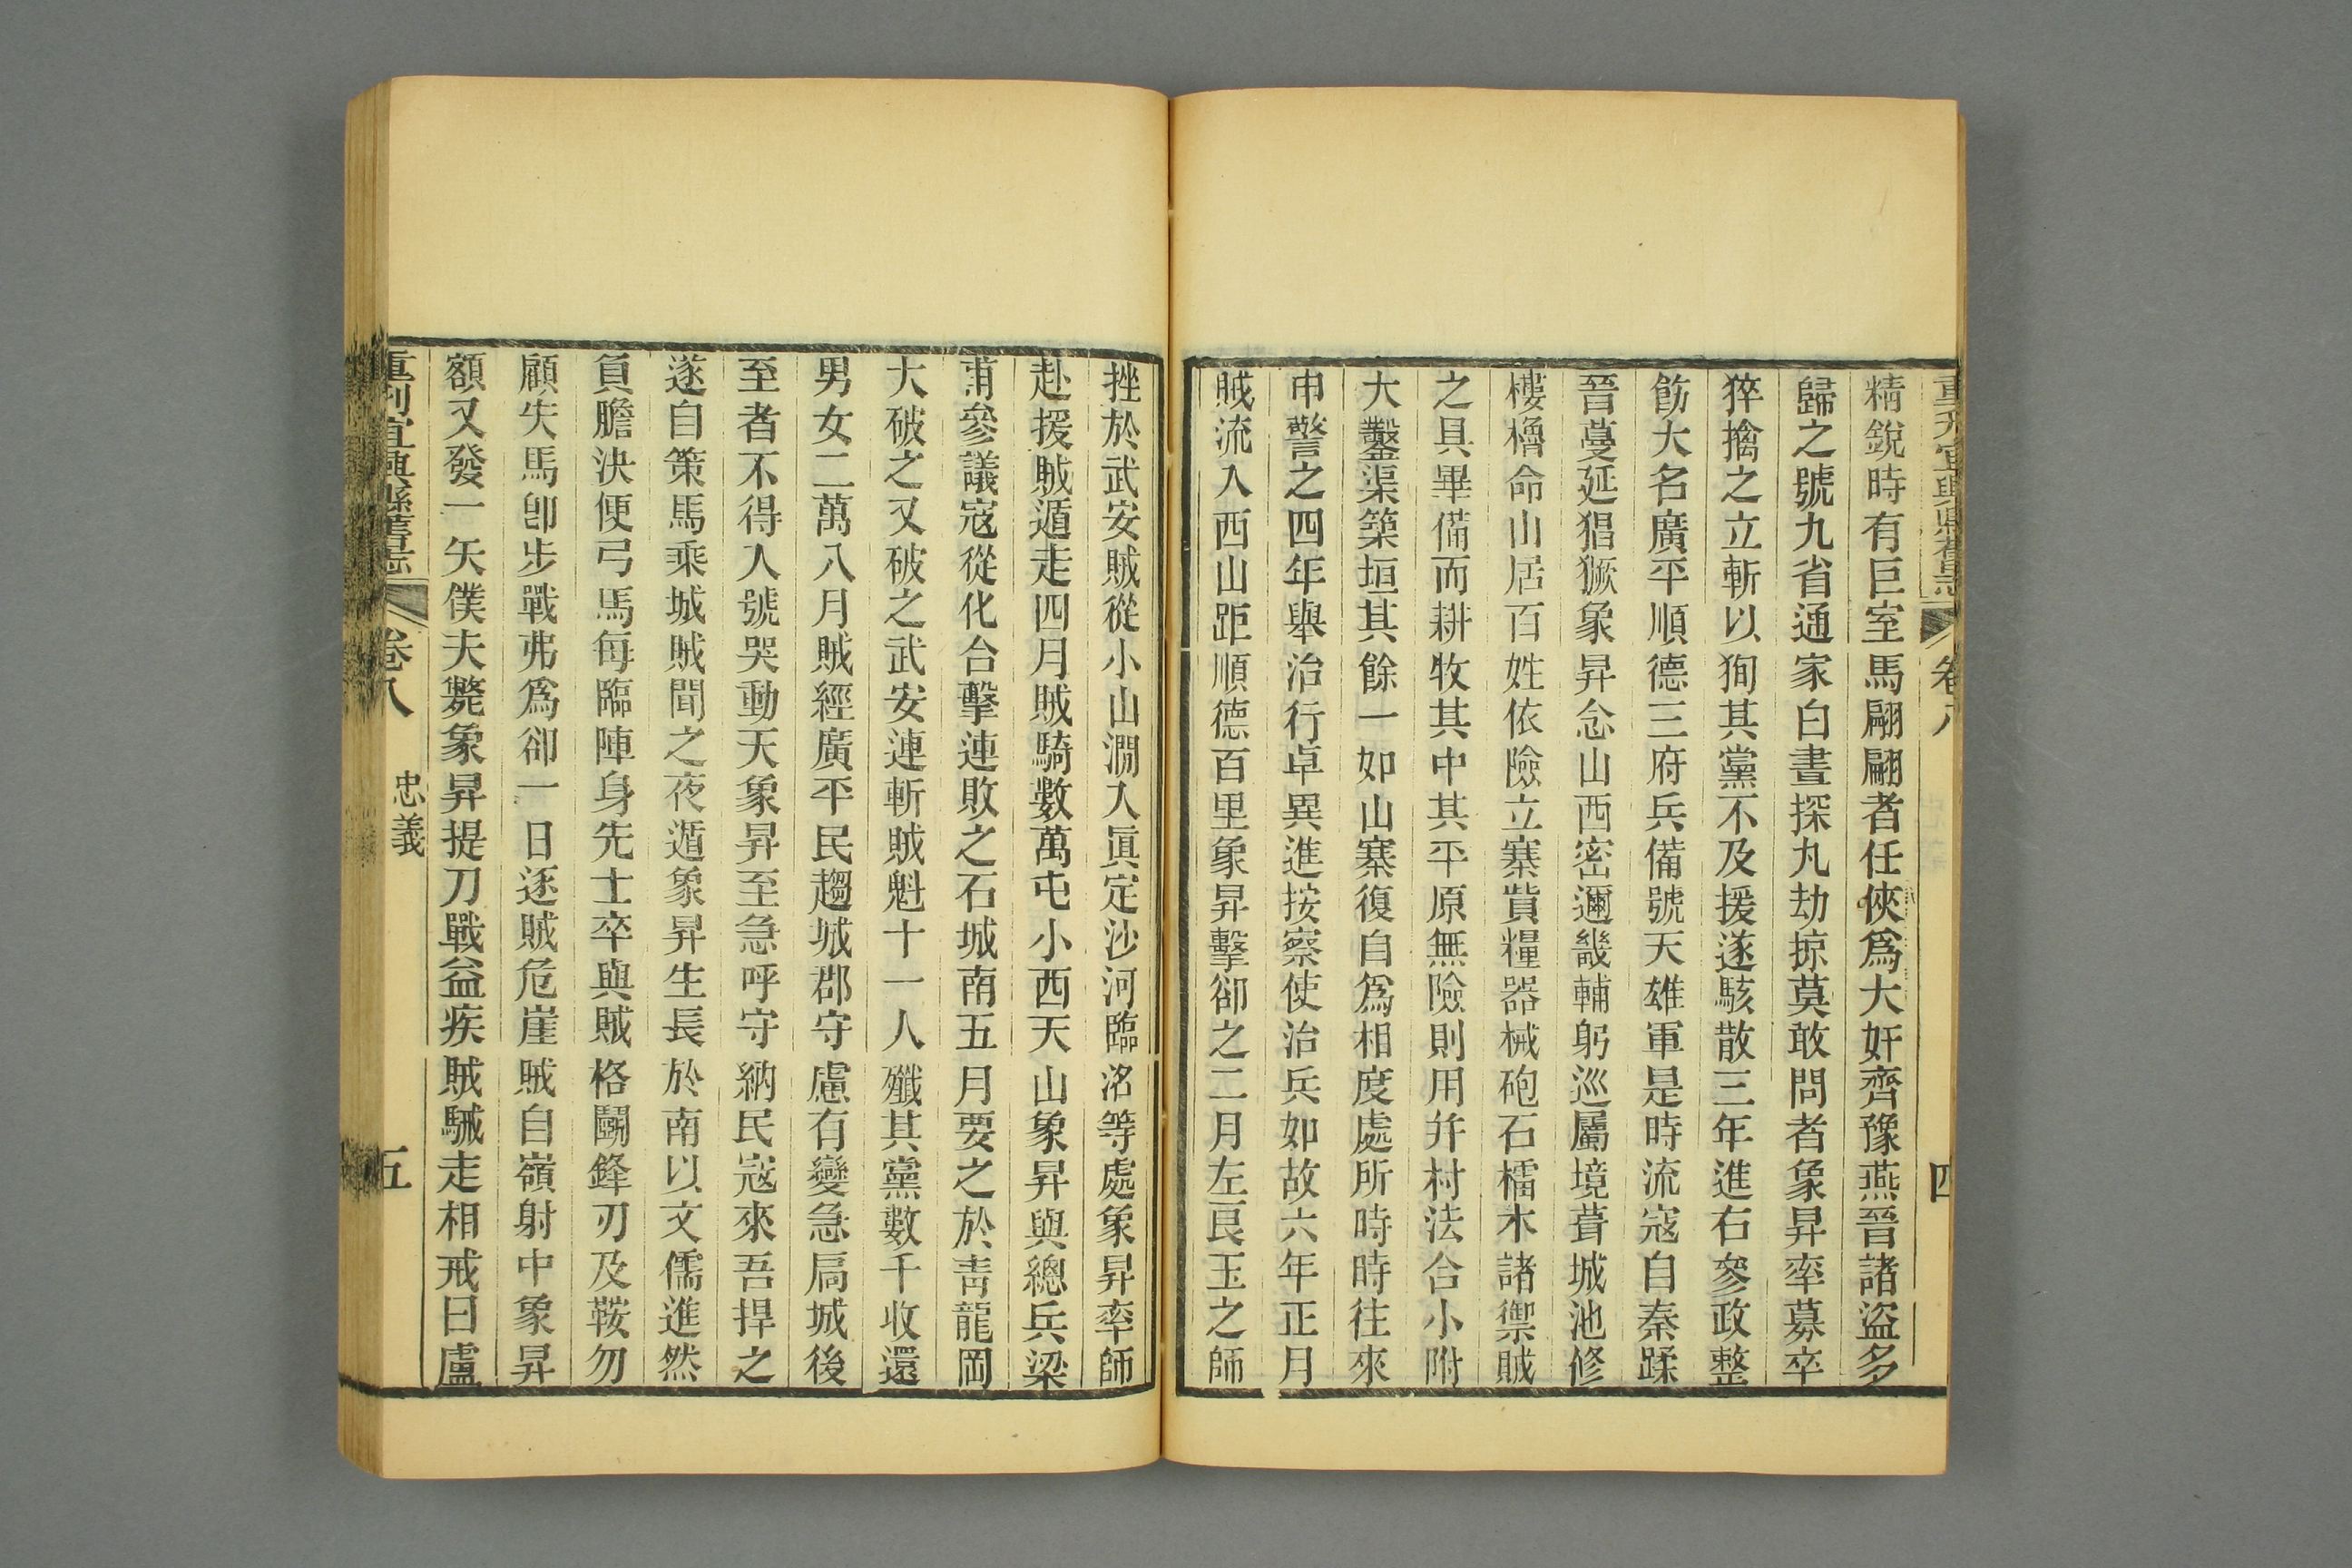 精銳時有巨室馬翩翩者任俠爲大奸齊豫燕晉諸盜多
歸之號九省通家白晝探丸劫掠莫敢問者象昇率募卒
猝擒之立斬以狥其黨不及援遂駭散三年進右參政整
飭大名廣平順德三府兵備號天雄軍是時流寇自秦蹂
晉蔓延猖獗象昇念山西密邇畿輔躬巡屬境葺城池修
樓櫓命山居百姓依險立寨貲糧器械砲石檑木諸禦賊
之具畢備而耕牧其中其平原無險則用幷村法合小附
大鑿渠築垣其餘一如山寨復自爲相度處所時時往來
申警之四年舉治行卓異進按察使治兵如故六年正月
賊流入西山距順德百里象昇擊卻之二月左良玉之師
挫於武安賊從小山澗入眞定沙河臨洺等處象昇率師
赴援賊遁走四月賊騎數萬屯小西天山象昇與總兵梁
甫參議寇從化合擊連敗之石城南五月要之於靑龍岡
大破之又破之武安連斬賊魁十一人殲其黨數千收還
男女二萬八月賊經廣平民趨城郡守慮有變急扃城後
至者不得入號哭動天象昇至急呼守納民寇來吾捍之
遂自策馬乘城賊聞之夜遁象昇生長於南以文儒進然
負膽決便弓馬每臨陣身先士卒與賊格鬭鋒刃及鞍勿
顧失馬卽步戰弗爲卻一日逐賊危崖賊自嶺射中象昇
額又發一矢僕夫斃象昇提刀戰益疾賊駴走相戒曰盧
重刊宜興縣舊志 卷八 忠義 五